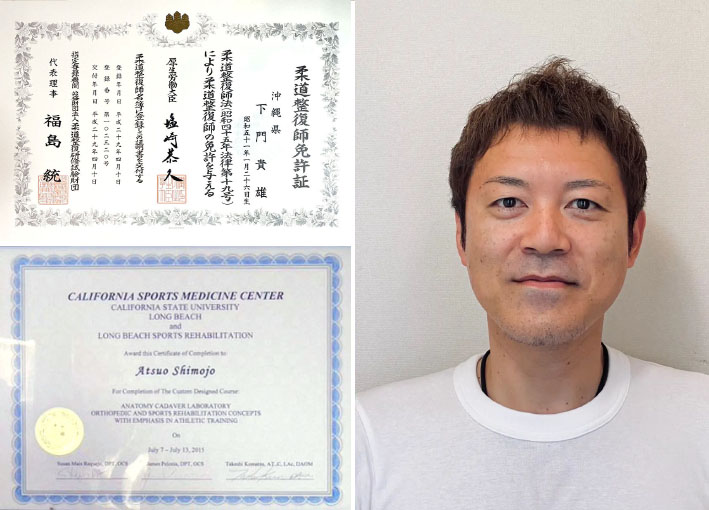 柔道整復師免許証
沖縄県
昭和五十一年一月二十六日生
下門貴雄
柔道整復師法(昭和四十五年法律第十九号)
により柔道整復師の免許を与える
厚生労働大臣 塩崎恭久
柔道整復師名簿に登録し を交付する
登録年月日 平成二十九年四月十日
登録番号 第一〇二五二〇号
交付年月日 平成二十九年四月十日
指定登録機関 公益財団法人柔道整復研修試験財団
代表理事 福島 統
CALIFORNIA SPORTS MEDICINE CENTER
CALIFORNIA STATE UNIVERSITY
LONG BEACH
and
LONG BEACH SPORTS REHABILITATION
Award this Certificate of Completion to
Atsuo Shimojo
For Completion of The Custom Designed Course:
ANATOMY CADAVER LABORATORY
ORTHOPEDIC AND SPORTS REHABILITATION CONCEPTS
WITH EMPHASIS IN ATHLETIC TRAINING
On
July 7 - July 13, 2015
Susan Mais Requejo, DPT, OCS James Felonia, DPT, OCS Takeshi Komatsu, AT.,C, LAc, DAOM